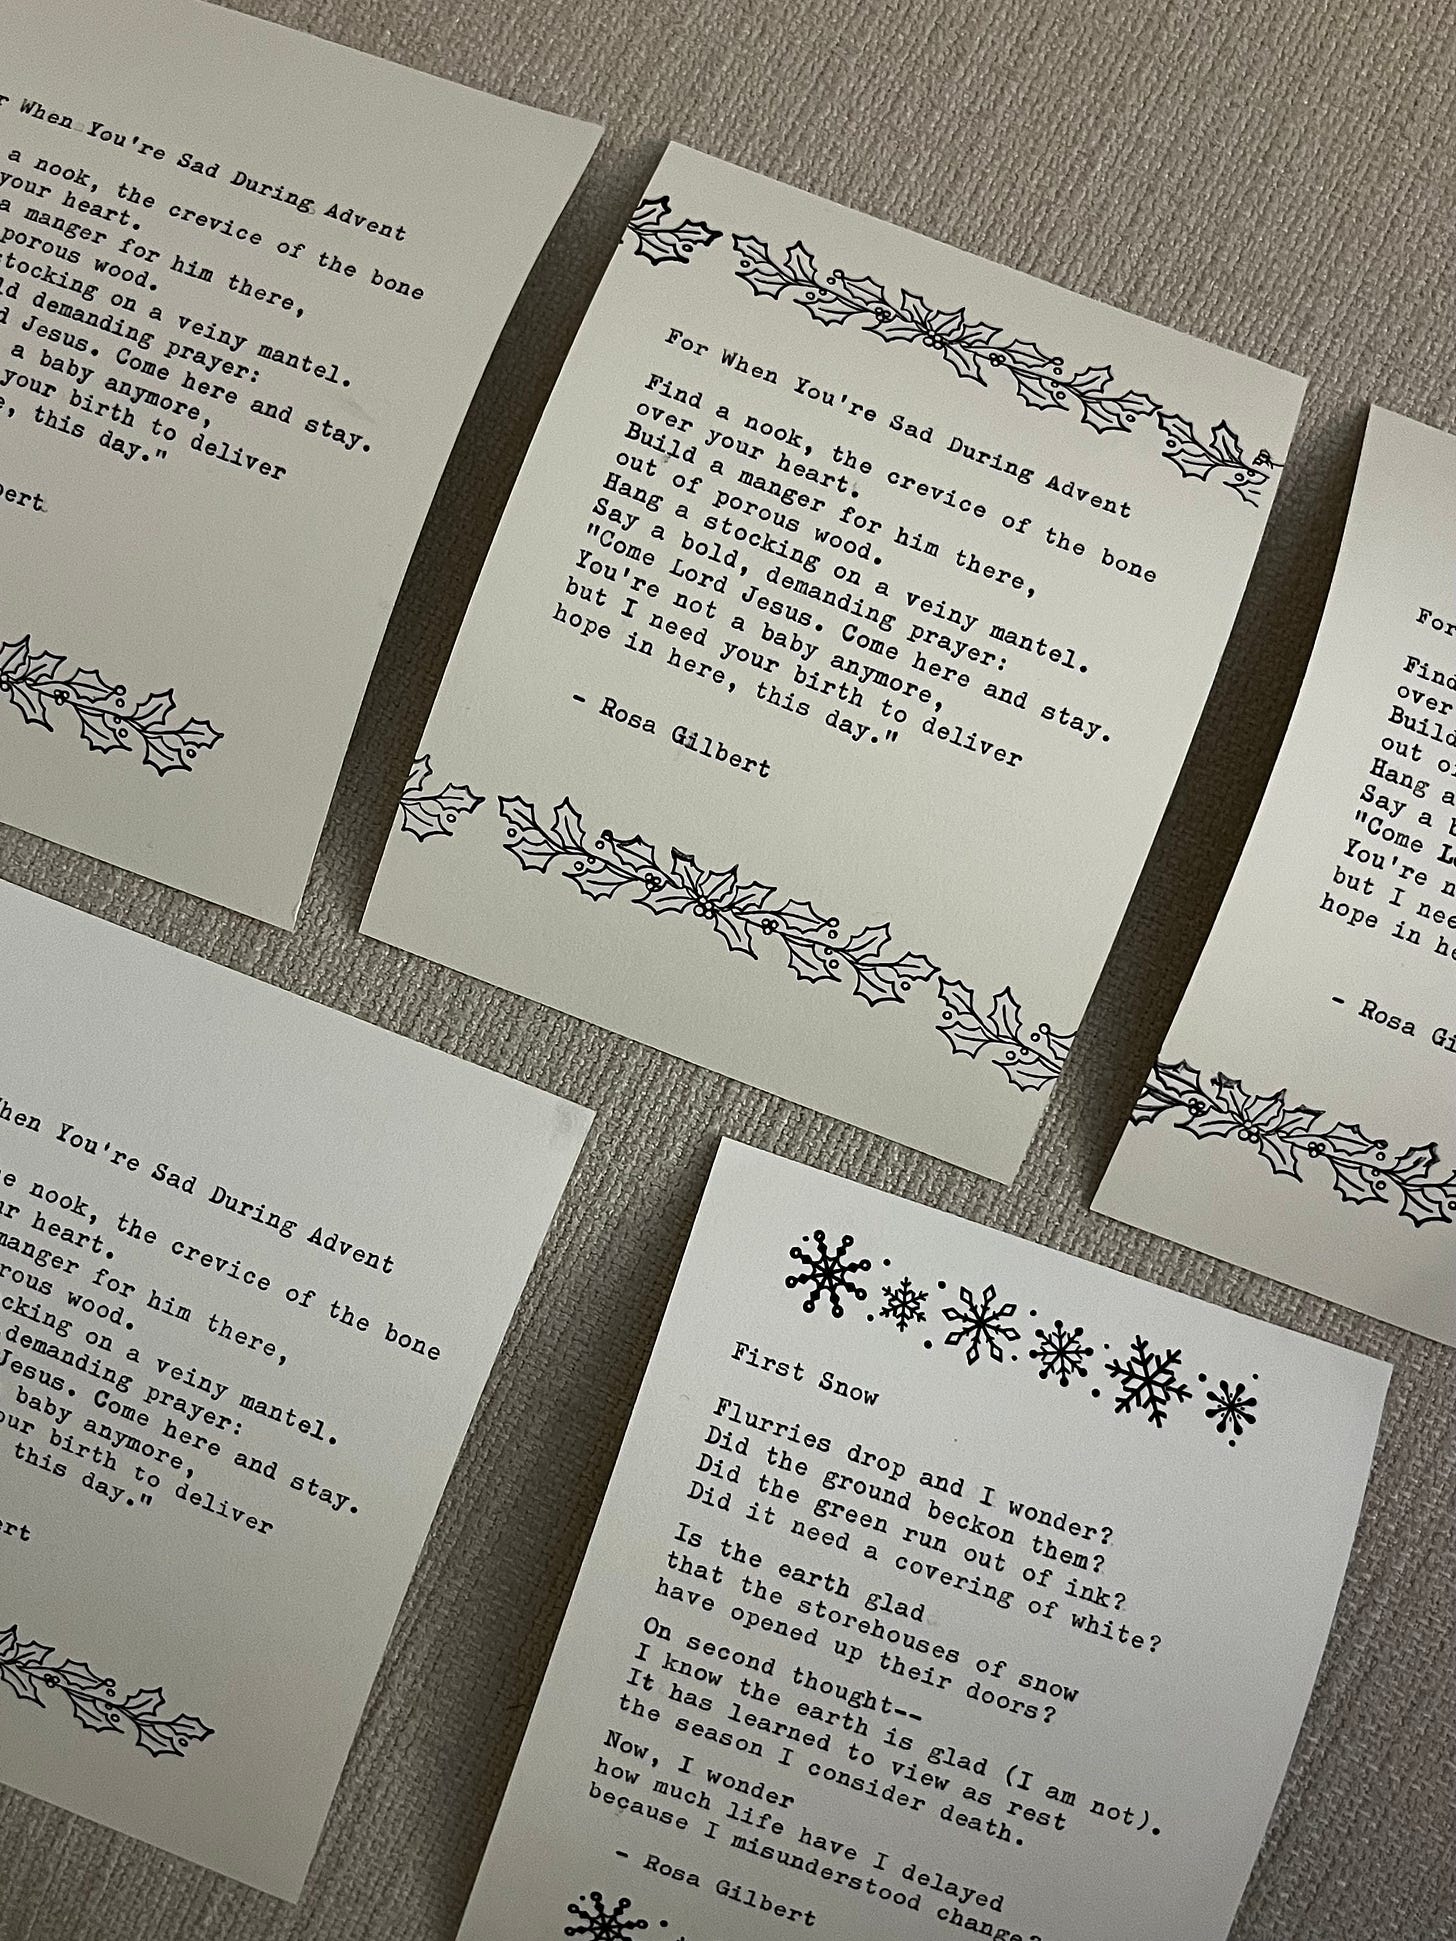 When You're Sad During Advent
a nook, the crevice of the bone
your heart.
a manger for him there,
porous wood.
stocking on a veiny mantel.
demanding prayer:
Jesus. Come here and stay.
a baby anymore,
your birth to deliver
this day."
For When You're Sad During Advent
Find a nook, the crevice of the bone
over your heart.
Build a manger for him there,
out of porous wood.
Hang a stocking on a veiny mantel.
Say a bold, demanding prayer:
"Come Lord Jesus. Come here and stay.
You're not a baby anymore,
but I need your birth to deliver
hope in here, this day."
- Rosa Gilbert
For
Find
over
Build
out
Hang a
Say a
"Come
You're
but I
hope in
- Rosa
You're Sad During Advent
nook, the crevice of the bone
heart.
for him there,
wood.
on a veiny mantel.
demanding prayer:
Jesus. Come here and stay.
baby anymore,
birth to deliver
this day."
First Snow
Flurries drop and I wonder?
Did the ground beckon them?
Did the green run out of ink?
Did it need a covering of white?
Is the earth glad
that the storehouses of snow
have opened up their doors?
On second thought--
I know the earth is glad (I am not).
It has learned to view as rest
the season I consider death.
Now, I wonder
how much life have I delayed
because I misunderstood change?
- Rosa Gilbert